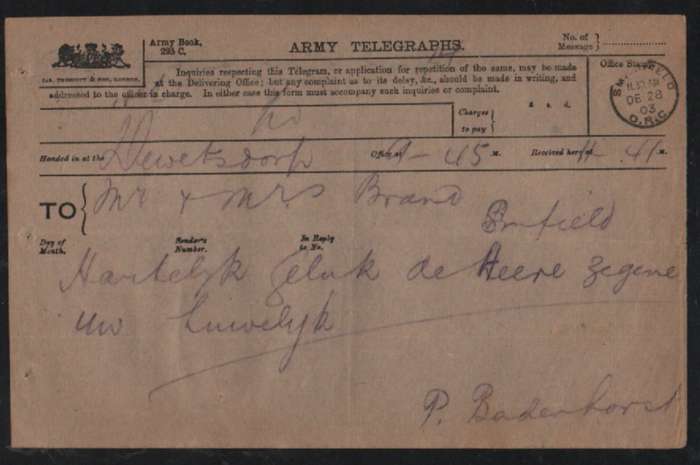 Army Book,
293 C.
ARMY TELEGRAPHS.
No. of
Message
Office Stamp.
Inquiries respecting this Telegram, or application for repetition of the same, may be made
at the Delivering Office; but any complaint us to its delay, &c., should be made in writing, and
addressed to the officer in charge. In either case this form must accompany such inquiries or complaint.
SMITHFIELD
DE 28
03
O.R.C
Charges
to pay
s. d.
Handed in at the Dewetsdorp Office at 9-45 M. Received here at 11.41 M.
TO Mr & Mrs Brand
Smfield
Day of
Month.
Sender's
Number.
In Reply
to No.
Hartelyk Geluk de Heere Zegene
uw huwelyk
P. Badenhorst